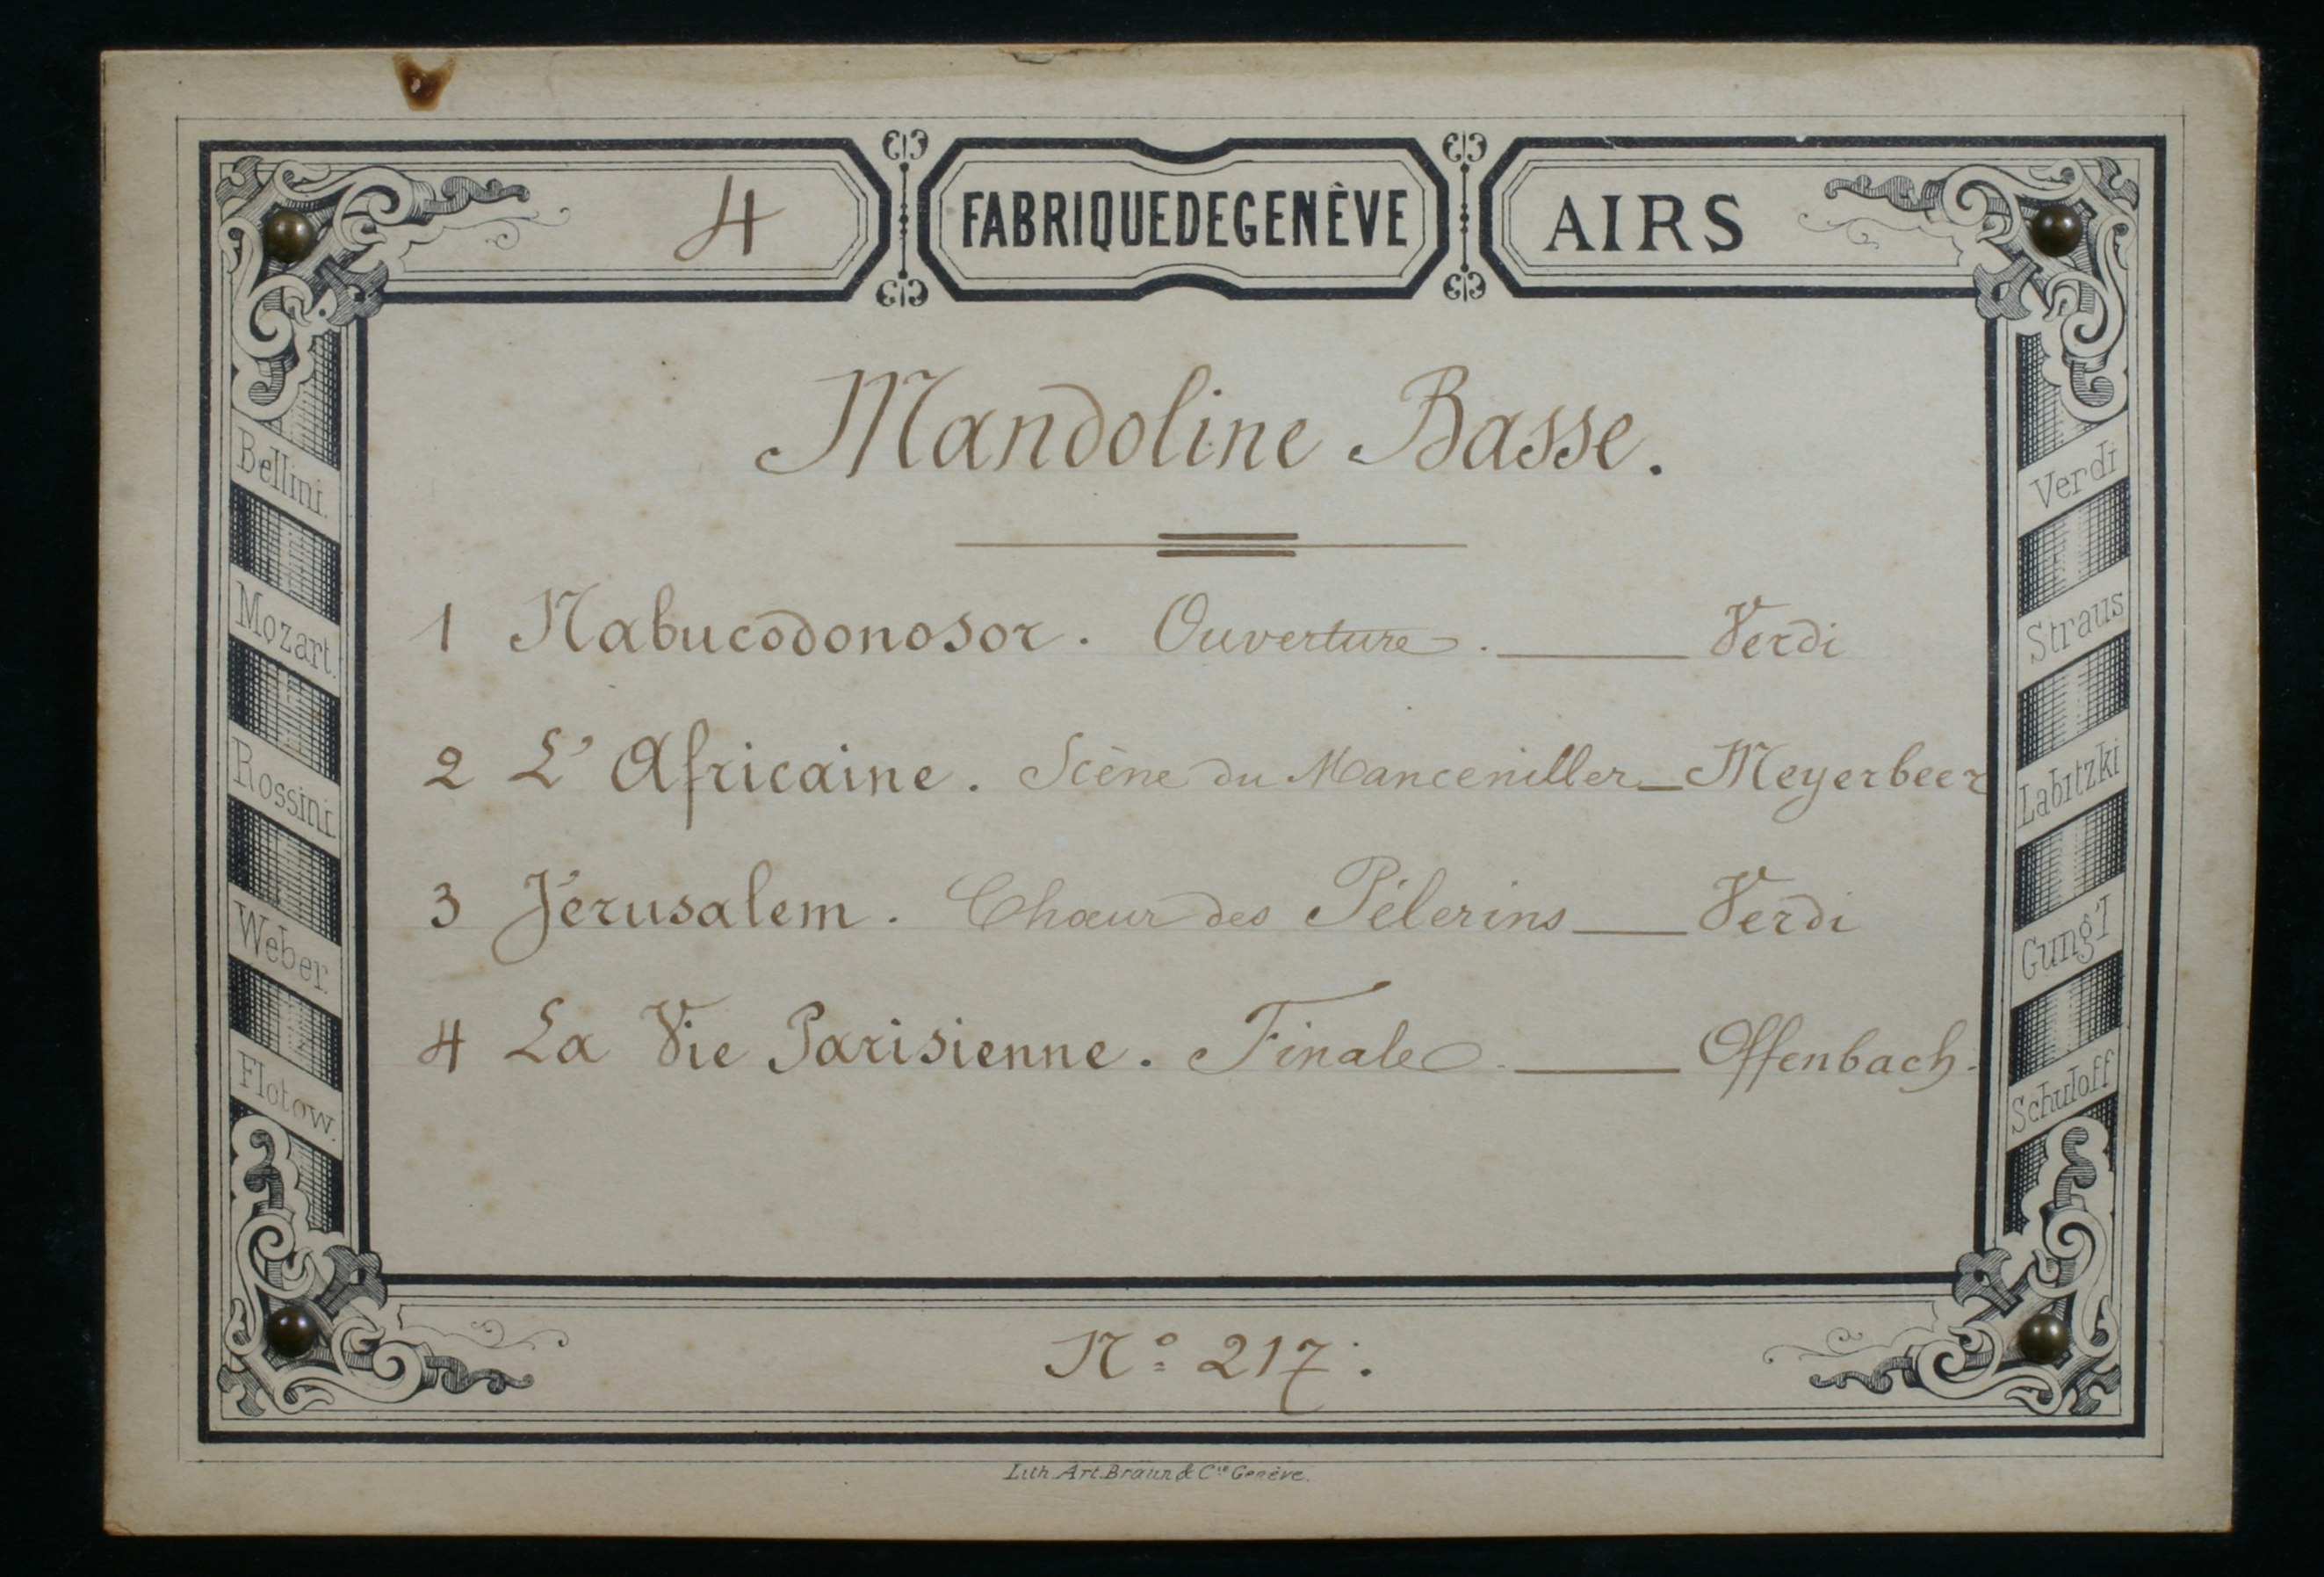 4 FABRIQUE DE GENÈVE AIRS
Mandoline Basse.
1 Nabucodonosor. Ouverture. Verdi
2 L'Africaine. Scène du Manceniller Meyerbeer
3 Jérusalem. Chœur des Pélerins Verdi
4 La Vie Parisienne. Finale. Offenbach.
Nº 217.
Bellini.
Mozart.
Rossini.
Weber.
Flotow.
Verdi
Straus
Labitzki
Gung'l
Schuloff
Lith. Art. Braun & Cie Genève.